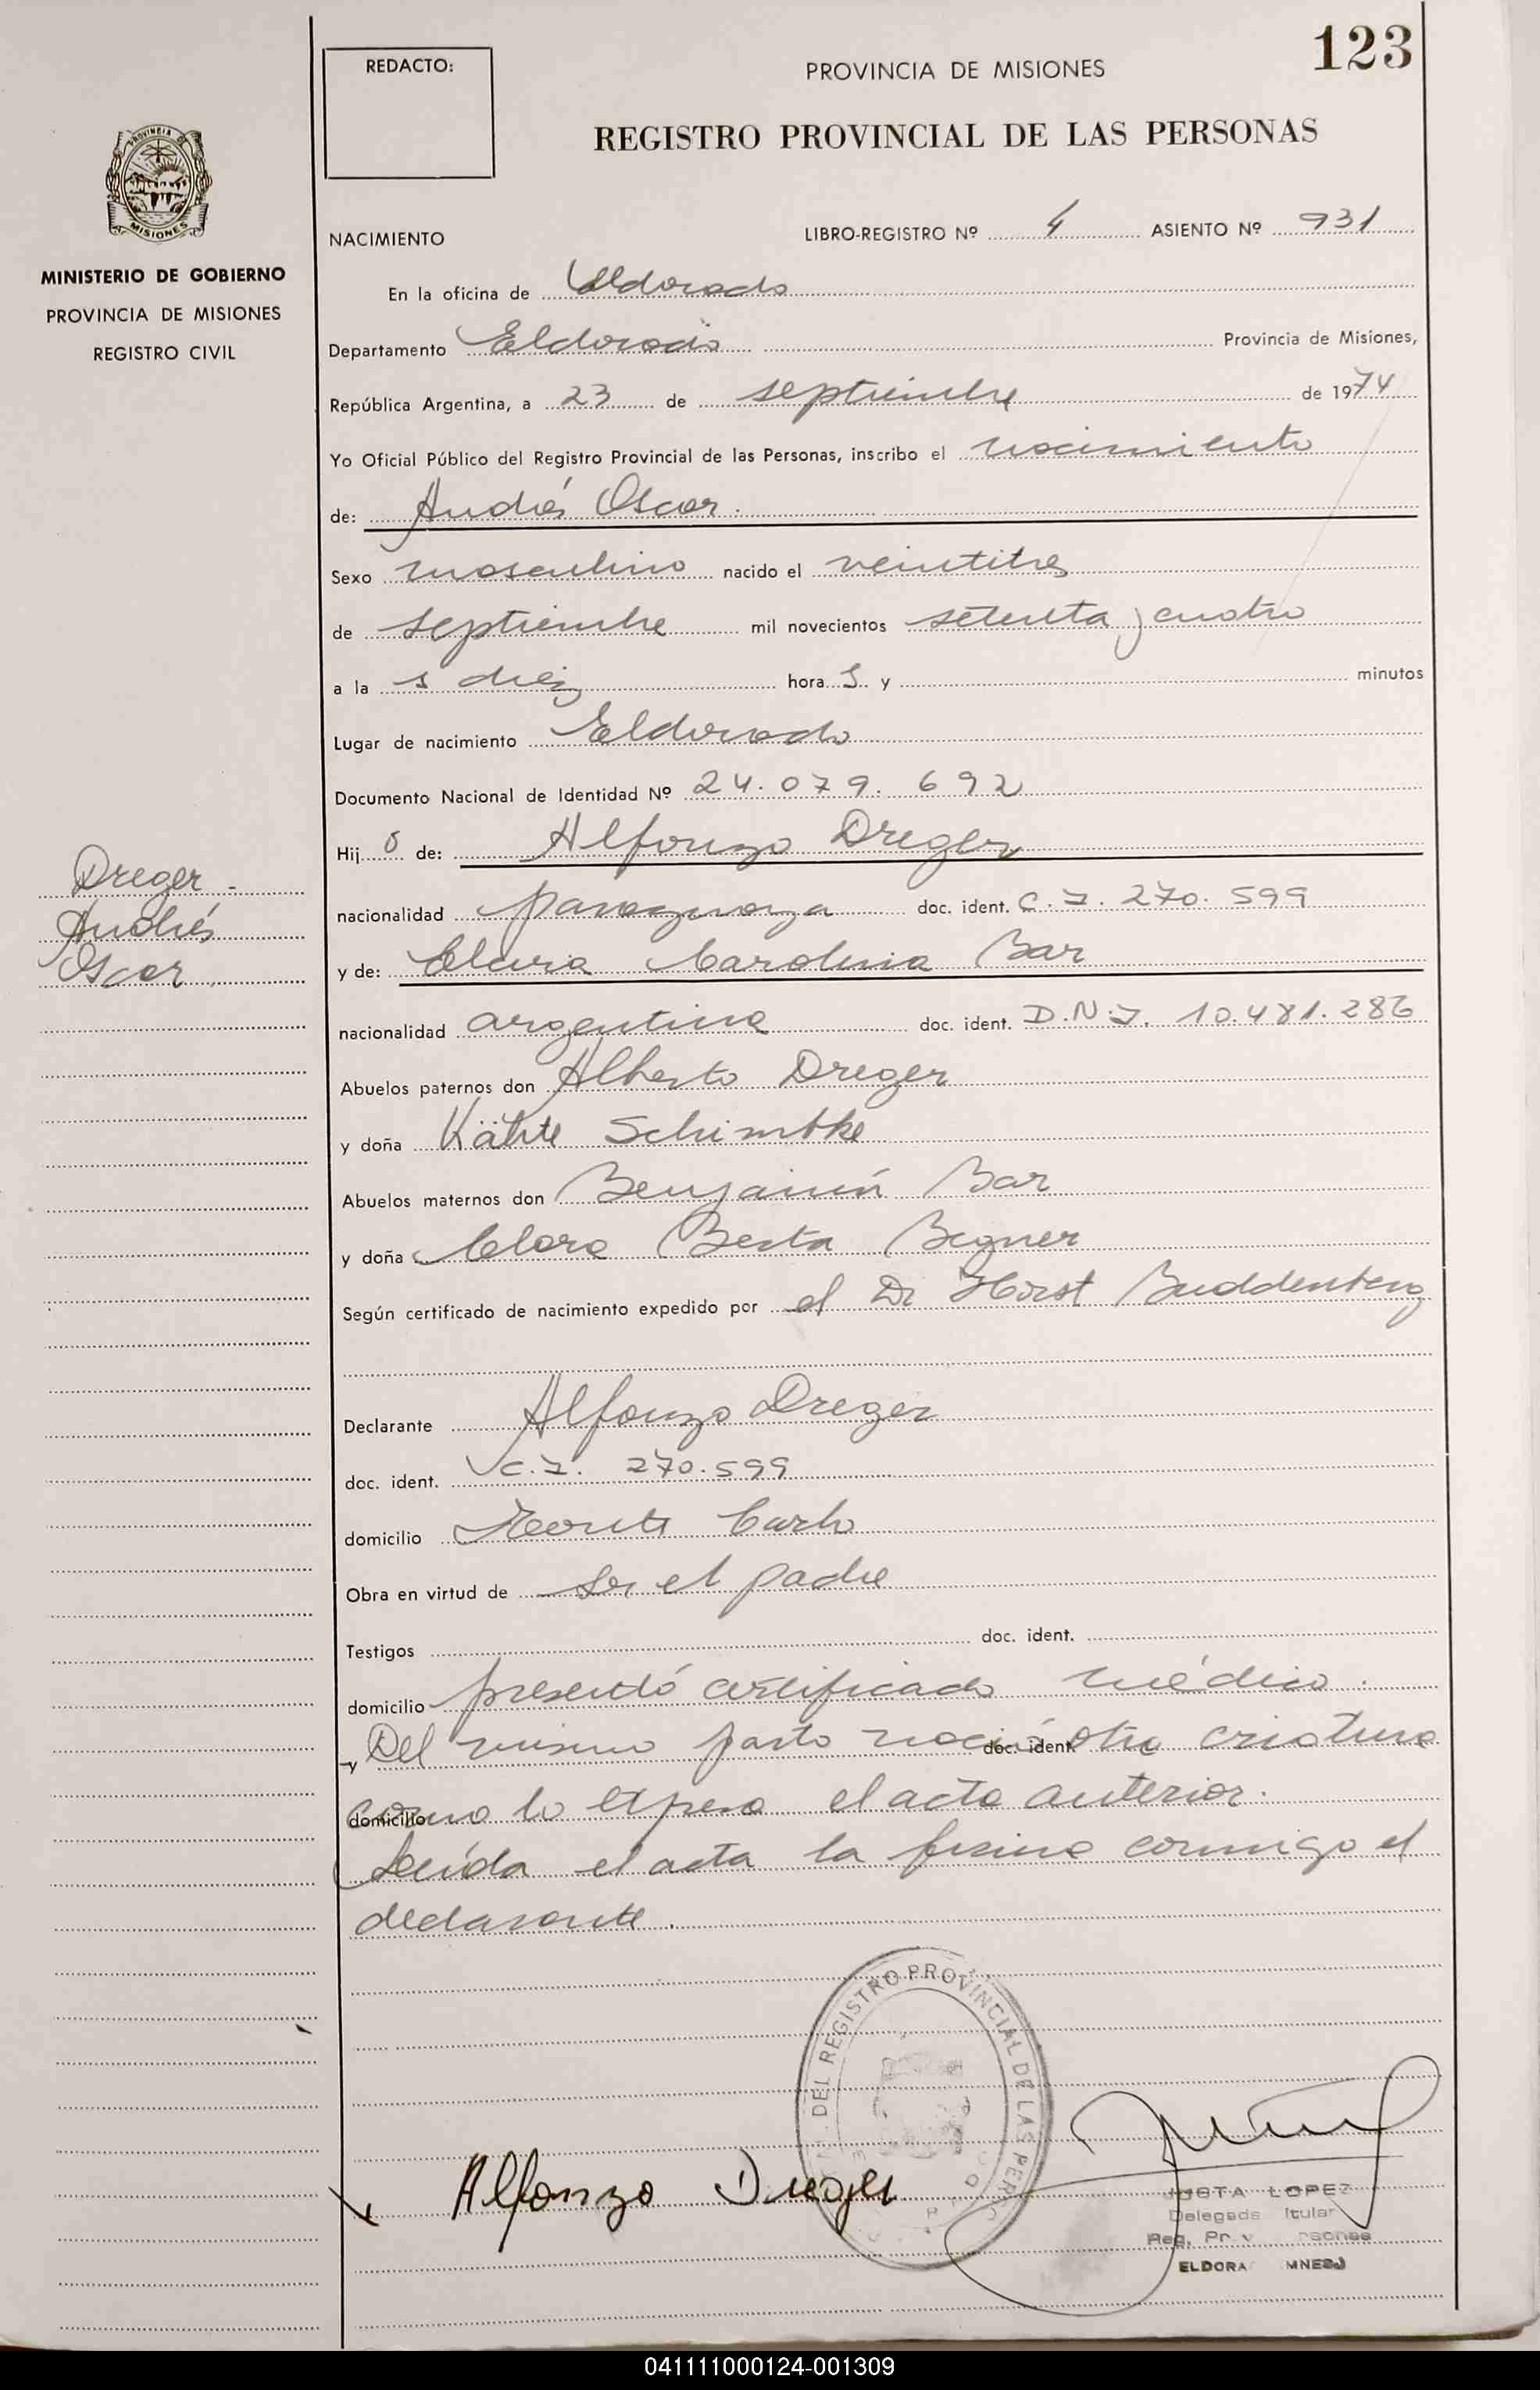 123
REDACTO:
PROVINCIA DE MISIONES
REGISTRO PROVINCIAL DE LAS PERSONAS
PROVINCIA DE
MISIONES
MINISTERIO DE GOBIERNO
PROVINCIA DE MISIONES
REGISTRO CIVIL
NACIMIENTO LIBRO-REGISTRO Nº 4 ASIENTO Nº 931
En la oficina de Eldorado
Departamento Eldorado Provincia de Misiones,
República Argentina, a 23 de septiembre de 1974
Yo Oficial Público del Registro Provincial de las Personas, inscribo el nacimiento
de: Andrés Oscar.
Sexo masculino nacido el veintitres
de septiembre mil novecientos setenta y cuatro
a la s diez hora s y minutos
Lugar de nacimiento Eldorado
Documento Nacional de Identidad Nº 24.079.692
Hij o de: Alfonzo Dreger
nacionalidad paraguaya doc. ident. C.I. 270.599
y de: Elvira Carolina Bar
nacionalidad argentina doc. ident. D.N.I. 10.481.286
Abuelos paternos don Alberto Dreger
y doña Käthe Schimtke
Abuelos maternos don Benjamín Bar
y doña Clara Berta Begner
Según certificado de nacimiento expedido por el Dr Horst Buddenberg
Declarante Alfonzo Dreger
doc. ident. C.I. 270.599
domicilio Monte Carlo
Obra en virtud de ser el padre
Testigos doc. ident.
domicilio presentó certificado médico.
y Del mismo parto nació doc. ident. otra criatura
domicilio como lo expresa el acta anterior.
Leída el acta la firma conmigo el
declarante.
Dreger
Andrés
Oscar
DEL REGISTRO PROVINCIAL DE LAS PERS
Alfonzo Dreger
JUSTA LOPEZ
Delegada itular
Reg. Prov rsonas
ELDORA MNES
041111000124-001309